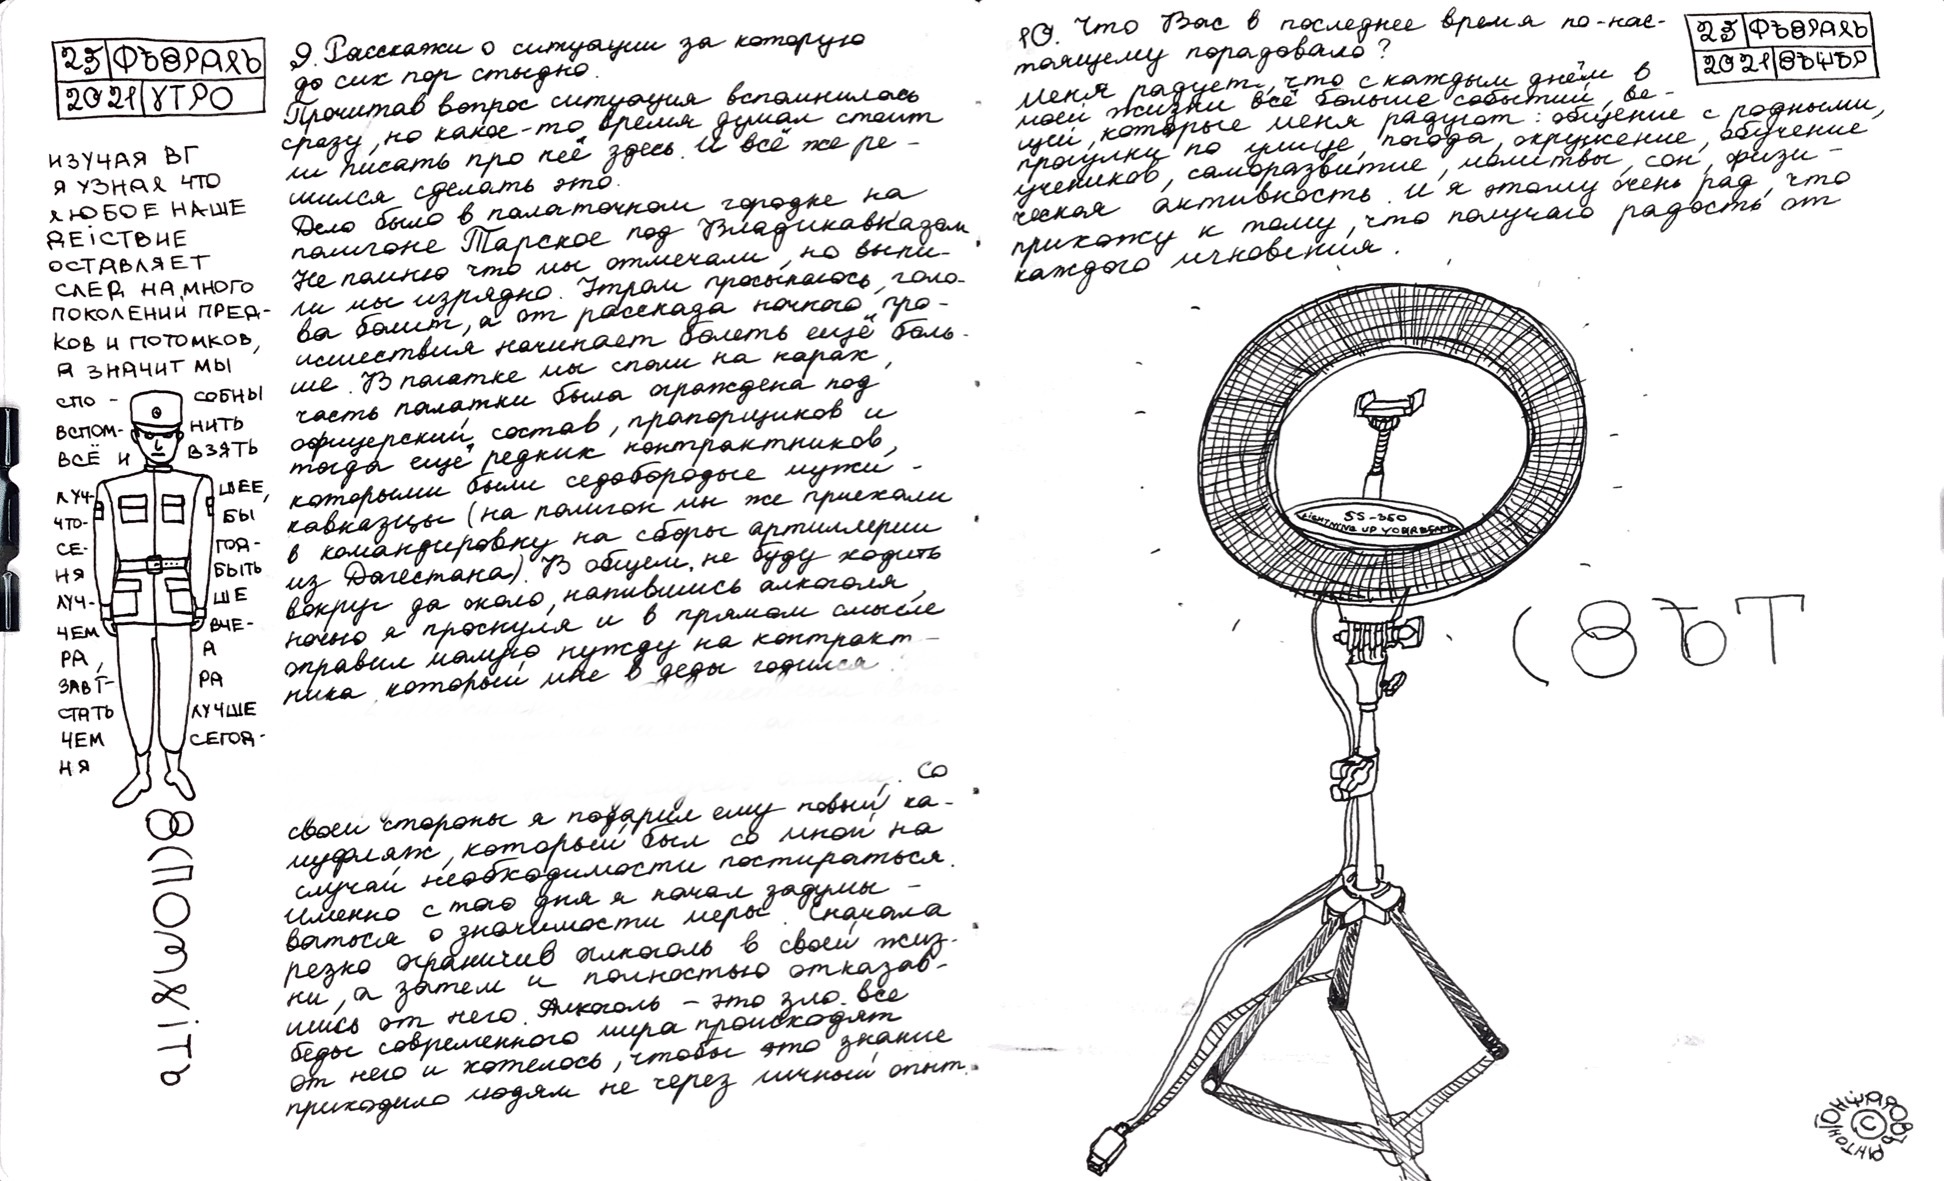 23 ФЪВРАЛЬ
2021 УТРО
ИЗУЧАЯ ВГ
Я УЗНАЛ ЧТО
ЛЮБОЕ НАШЕ
ДЕЙСТВИЕ
ОСТАВЛЯЕТ
СЛЕД НА МНОГО
ПОКОЛЕНИЙ ПРЕД-
КОВ И ПОТОМКОВ,
А ЗНАЧИТ МЫ
СПО- СОБНЫ
ВСПОМ- НИТЬ
ВСЁ И ВЗЯТЬ
ЛУЧ- ШЕЕ,
ЧТО- БЫ
СЕ- ГОД-
НЯ БЫТЬ
ЛУЧ- ШЕ
ЧЕМ ВЧЕ-
РА, А
ЗАВТ- РА
СТАТЬ ЛУЧШЕ
ЧЕМ СЕГОД-
НЯ
9. Расскажи о ситуации за которую
до сих пор стыдно.
Прочитав вопрос ситуация вспомнилась
сразу, но какое-то время думал стоит
ли писать про неё здесь. И всё же ре-
шился сделать это.
Дело было в палаточном городке на
полигоне Тарское под Владикавказом.
Не помню что мы отмечали, но выпи-
ли мы изрядно. Утром просыпаюсь, голо-
ва болит, а от рассказа ночного про-
исшествия начинает болеть ещё боль-
ше. В палатке мы спали на нарах,
часть палатки была ограждена под
офицерский состав, прапорщиков и
тогда ещё редких контрактников,
которыми были седобородые мужи-
кавказцы (на полигон мы же приехали
в командировку на сборы артиллерии
из Дагестана). В общем, не буду ходить
вокруг да около, напившись алкоголя,
ночью я проснулся и в прямом смысле
справил малую нужду на контракт-
ника, который мне в деды годился.
Со
своей стороны я подарил ему новый ка-
муфляж, который был со мной на
случай необходимости постираться.
Именно с того дня я начал задумы-
ваться о значимости меры. Сначала
резко ограничив алкоголь в своей жиз-
ни, а затем и полностью отказав-
шись от него. Алкоголь - это зло. Все
беды современного мира происходят
от него и хотелось, чтобы это знание
приходило людям не через личный опыт.
10. Что Вас в последнее время по-нас-
тоящему порадовало?
Меня радует, что с каждым днём в
моей жизни всё больше событий, ве-
щей, которые меня радуют: общение с родными,
прогулки по улице, погода, окружение, обучение
учеников, саморазвитие, молитвы, сон, физи-
ческая активность. И я этому очень рад, что
прихожу к тому, что получаю радость от
каждого мгновения.
23 ФЪВРАЛЬ
2021
SS-350
(ВЪТ